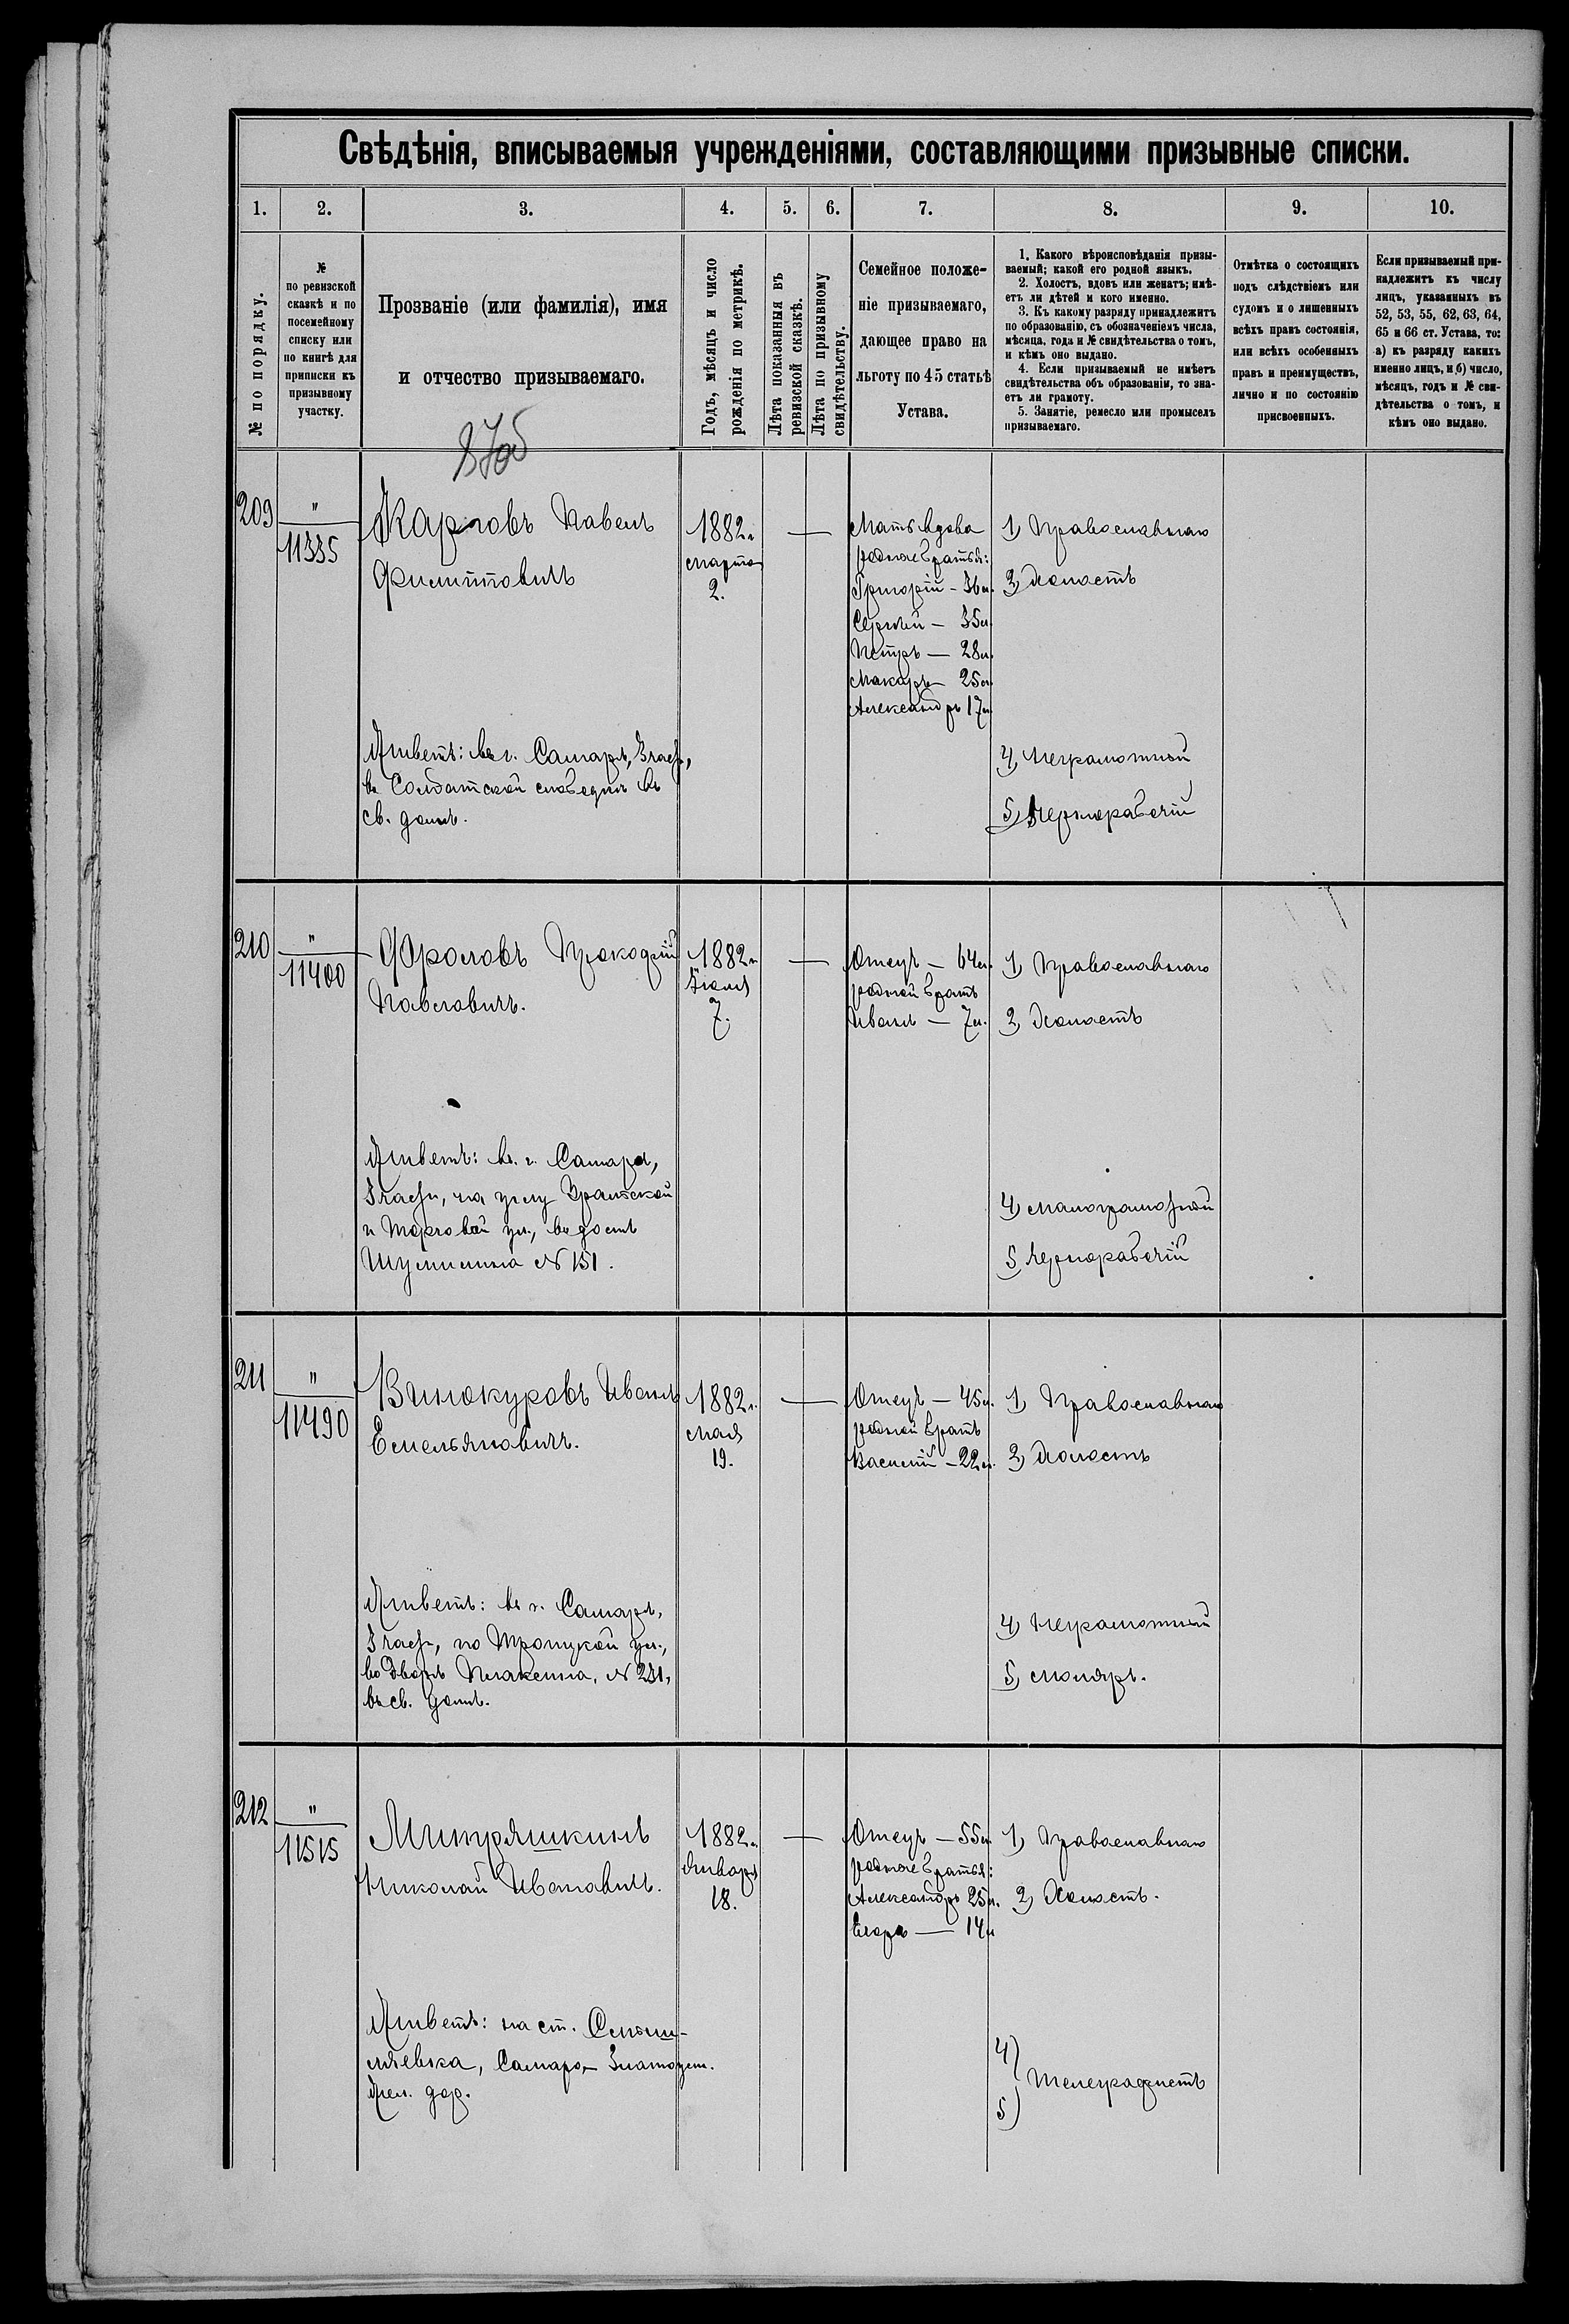 Свѣдѣнія, вписываемыя учрежденіями, составляющими призывные списки.
1. 2. 3. 4. 5. 6. 7. 8. 9. 10.
№ по порядку.
№
по ревизской
сказкѣ и по
посемейному
списку или
по книгѣ для
приписки къ
призывному
участку.
Прозваніе (или фамилія), имя
и отчество призываемаго.
Годъ, мѣсяцъ и число
рожденія по метрикѣ.
Лѣта показанныя въ
ревизской сказкѣ.
Лѣта по призывному
свидѣтельству.
Семейное положе-
ніе призываемаго,
дающее право на
льготу по 45 статьѣ
Устава.
1. Какого вѣроисповѣданія призы-
ваемый; какой его родной языкъ.
2. Холостъ, вдовъ или женатъ; имѣ-
етъ ли дѣтей и кого именно.
3. Къ какому разряду принадлежитъ
по образованію, съ обозначеніемъ числа,
мѣсяца, года и № свидѣтельства о томъ,
и кѣмъ оно выдано.
4. Если призываемый не имѣетъ
свидѣтельства объ образованіи, то зна-
етъ ли грамоту.
5. Занятіе, ремесло или промыселъ
призываемаго.
Отмѣтка о состоящихъ
подъ слѣдствіемъ или
судомъ и о лишенныхъ
всѣхъ правъ состоянія,
или всѣхъ особенныхъ
правъ и преимуществъ,
лично и по состоянію
присвоенныхъ.
Если призываемый при-
надлежитъ къ числу
лицъ, указанныхъ въ
52, 53, 55, 62, 63, 64,
65 и 66 ст. Устава, то:
а) къ разряду какихъ
именно лицъ, и б) число,
мѣсяцъ, годъ и № сви-
дѣтельства о томъ, и
кѣмъ оно выдано.
209
"
11335
Карповъ Павелъ
Филипповичъ
1882 г.
марта
2.
—
Мать вдова
родные братья:
Григорій — 36 л.
Сергѣй — 35 л.
Петръ — 28 л.
Макаръ — 25 л.
Александръ 17 л.
1) Православнаго
2) Холостъ
Живетъ: въ г. Самарѣ, 3 части,
въ Солдатской слободкѣ въ
св. домѣ.
4) Неграмотный
5) Чернорабочій
210
"
11400
Фроловъ Прокофій
Павловичъ.
1882 г.
Іюля
7.
—
Отецъ — 64 л.
родной братъ
Иванъ — 7 л.
1) Православнаго
2) Холостъ
Живетъ: въ г. Самарѣ,
3 части, на углу
и Торговой ул., въ домѣ
№ 151.
4) Малограмотный
5) Чернорабочій
211
"
11490
Винокуровъ Иванъ
Емельяновичъ.
1882 г.
мая
19.
—
Отецъ — 45 л.
родной братъ
Василій — 22 л.
1) Православнаго
2) Холостъ
Живетъ: въ г. Самарѣ,
3 части, по Троицкой ул.,
во дворѣ Плаксина, № 231,
въ св. домѣ.
4) Неграмотный
5) Столяръ.
212
"
11515
Минуряшкинъ
Николай Ивановичъ.
1882 г.
Января
18.
—
Отецъ — 55 л.
родные братья:
Александръ 25 л.
Егоръ — 14 л.
1) Православнаго
2) Холостъ.
Живетъ: на ст. Смыш-
ляевка, Самаро-Златоуст.
жел. дор.
4)
5) Телеграфистъ